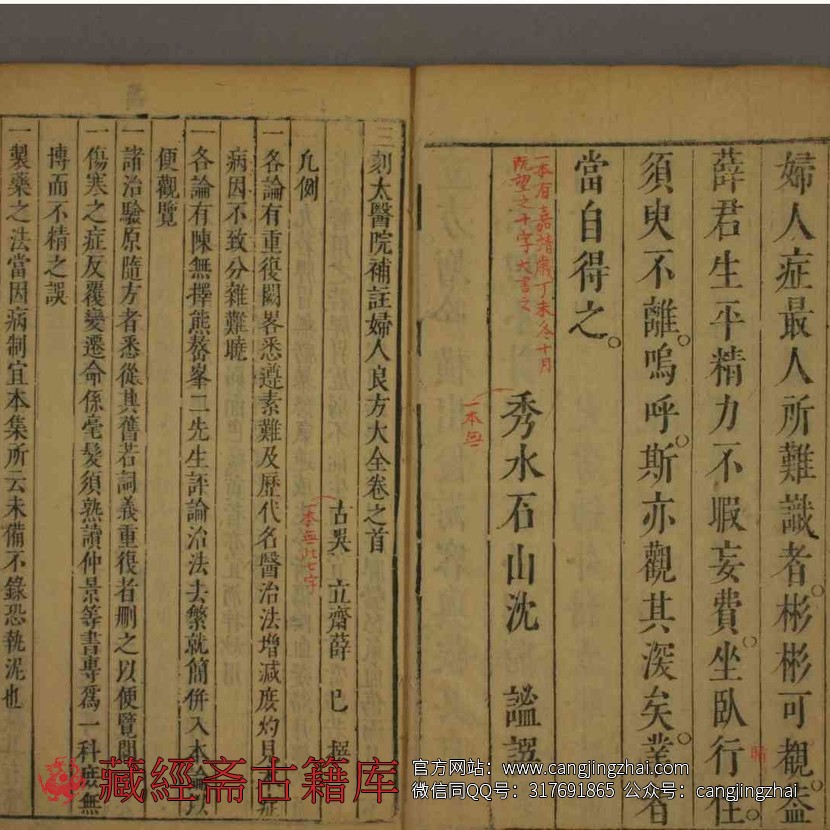 婦人症最人所難識者彬彬可觀蓋
薛君生平精力不暇妄費坐臥行住
須臾不離嗚呼斯亦觀其深矣業者
當自得之
一本有嘉靖歲丁未冬十月
既望之十字大書之
秀水石山沈 謐
一本無
三刻太醫院補註婦人良方大全卷之首
古吳 立齋薛 己
一本無此七字
凡例
一各論有重復闕畧悉遵素難及歷代名醫治法增減庶灼見本症
病因不致分雜難曉
一各論有陳無擇熊鰲峯二先生評論治法去繁就簡併入本論以
便觀覽
一諸治驗原隨方者悉從其舊若詞義重復者刪之以便覽閱
一傷寒之症反覆變遷命係毫髮須熟讀仲景等書專爲一科庶無
博而不精之誤
一製藥之法當因病制宜本集所云未備不錄恐執泥也
藏經斋古籍库
官方网站：www.cangjingzhai.com
微信同QQ号：317691865 公众号：cangjingzhai